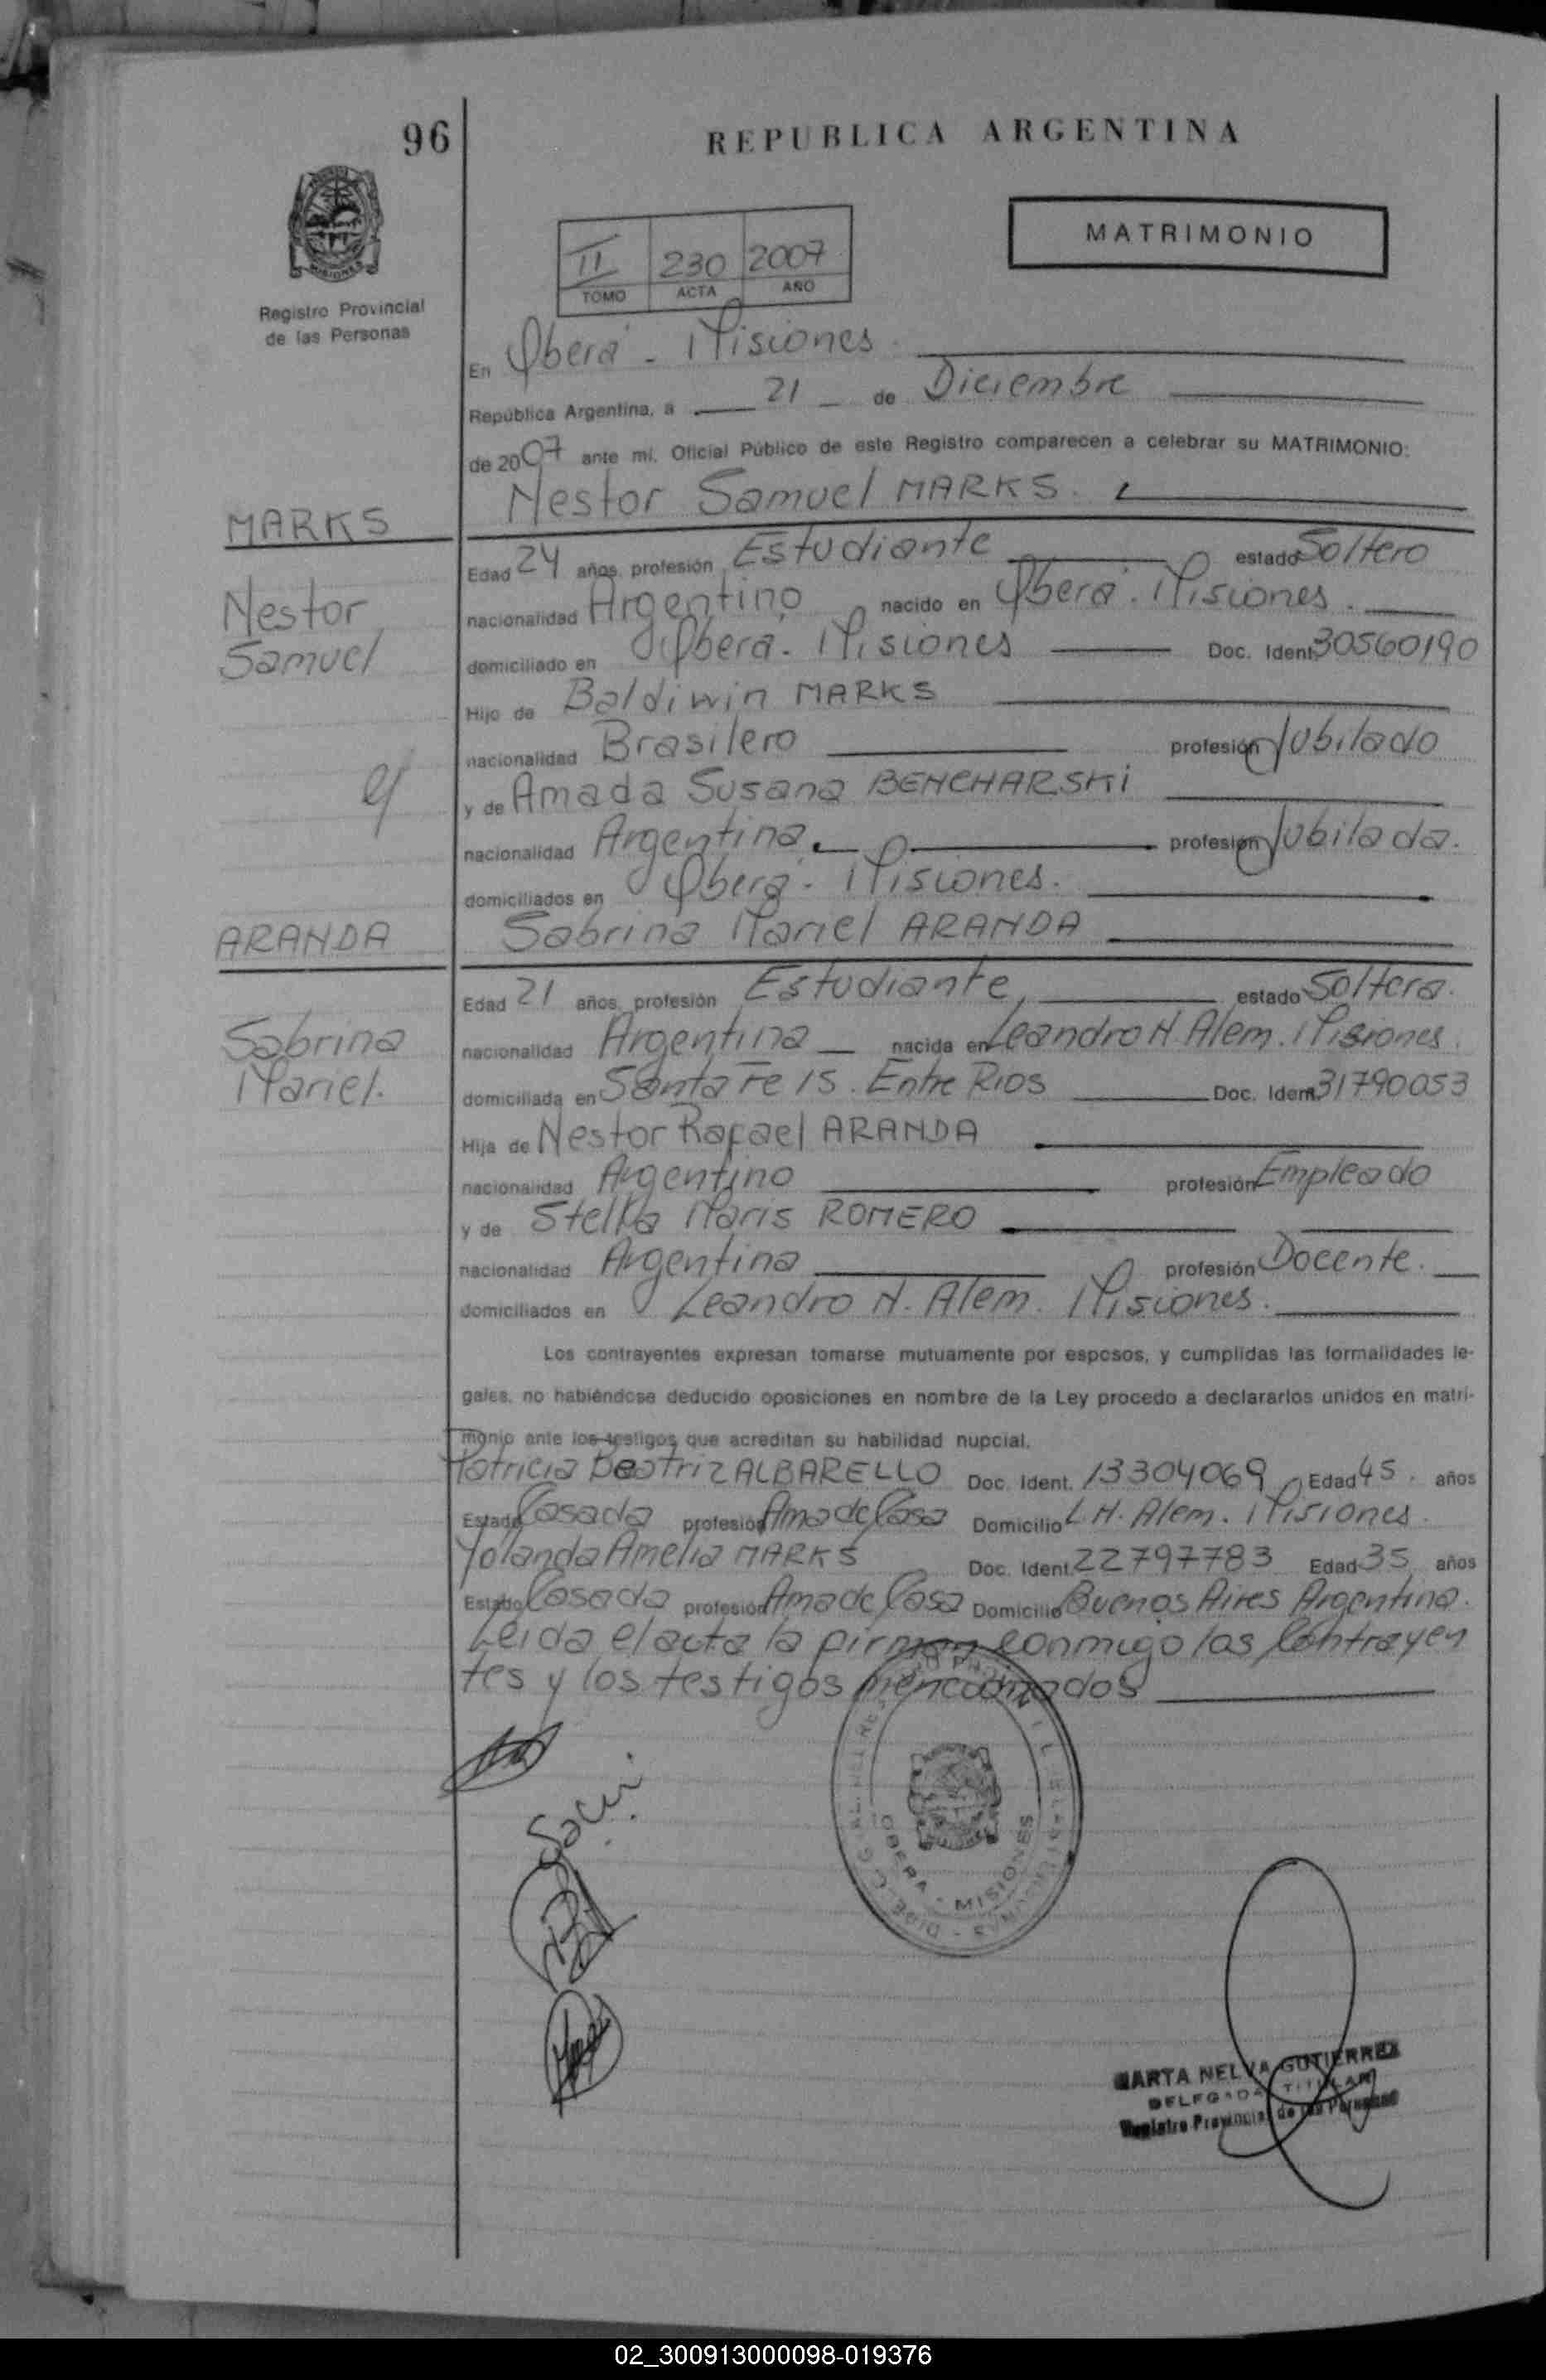 96
REPUBLICA ARGENTINA
MISIONES
Registro Provincial
de las Personas
MATRIMONIO
II 230 2007
TOMO ACTA AÑO
En Oberá - Misiones
República Argentina, a 21 de Diciembre
de 2007 ante mí, Oficial Público de este Registro comparecen a celebrar su MATRIMONIO:
MARKS Nestor Samuel MARKS.
Edad 24 años, profesión Estudiante estado Soltero
Nestor nacionalidad Argentino nacido en Oberá. Misiones.
Samuel domiciliado en Oberá. Misiones Doc. Ident. 30560190
Hijo de Baldiwin MARKS
nacionalidad Brasilero profesión Jubilado
y de Amada Susana BENCHARSKi
nacionalidad Argentina. profesión Jubilada.
domiciliados en Oberá. Misiones.
ARANDA Sabrina Mariel ARANDA
Edad 21 años, profesión Estudiante, estado Soltera.
Sabrina nacionalidad Argentina nacida en Leandro N. Alem. Misiones.
Mariel. domiciliada en Santa Fe 15. Entre Rios Doc. Ident. 31790053
Hija de Nestor Rafael ARANDA
nacionalidad Argentino profesión Empleado
y de Stella Maris ROMERO
nacionalidad Argentina profesión Docente.
domiciliados en Leandro N. Alem. Misiones.
Los contrayentes expresan tomarse mutuamente por esposos, y cumplidas las formalidades le-
gales, no habiéndose deducido oposiciones en nombre de la Ley procedo a declararlos unidos en matri-
monio ante los testigos que acreditan su habilidad nupcial.
Patricia Beatriz ALBARELLO Doc. Ident. 13304069 Edad 45. años
Estado Casada profesión Ama de Casa Domicilio L N. Alem. Misiones.
Yolanda Amelia MARKS Doc. Ident. 22797783 Edad 35 años
Estado Casada profesión Ama de Casa Domicilio Buenos Aires Argentina.
Leida el acta la firman conmigo los Contrayen
tes y los testigos mencionados
OBERA - MISIONES
MARTA NELVA GUTIERREZ
DELEGADA TITULAR
Registro Provincial de las Personas
02_300913000098-019376